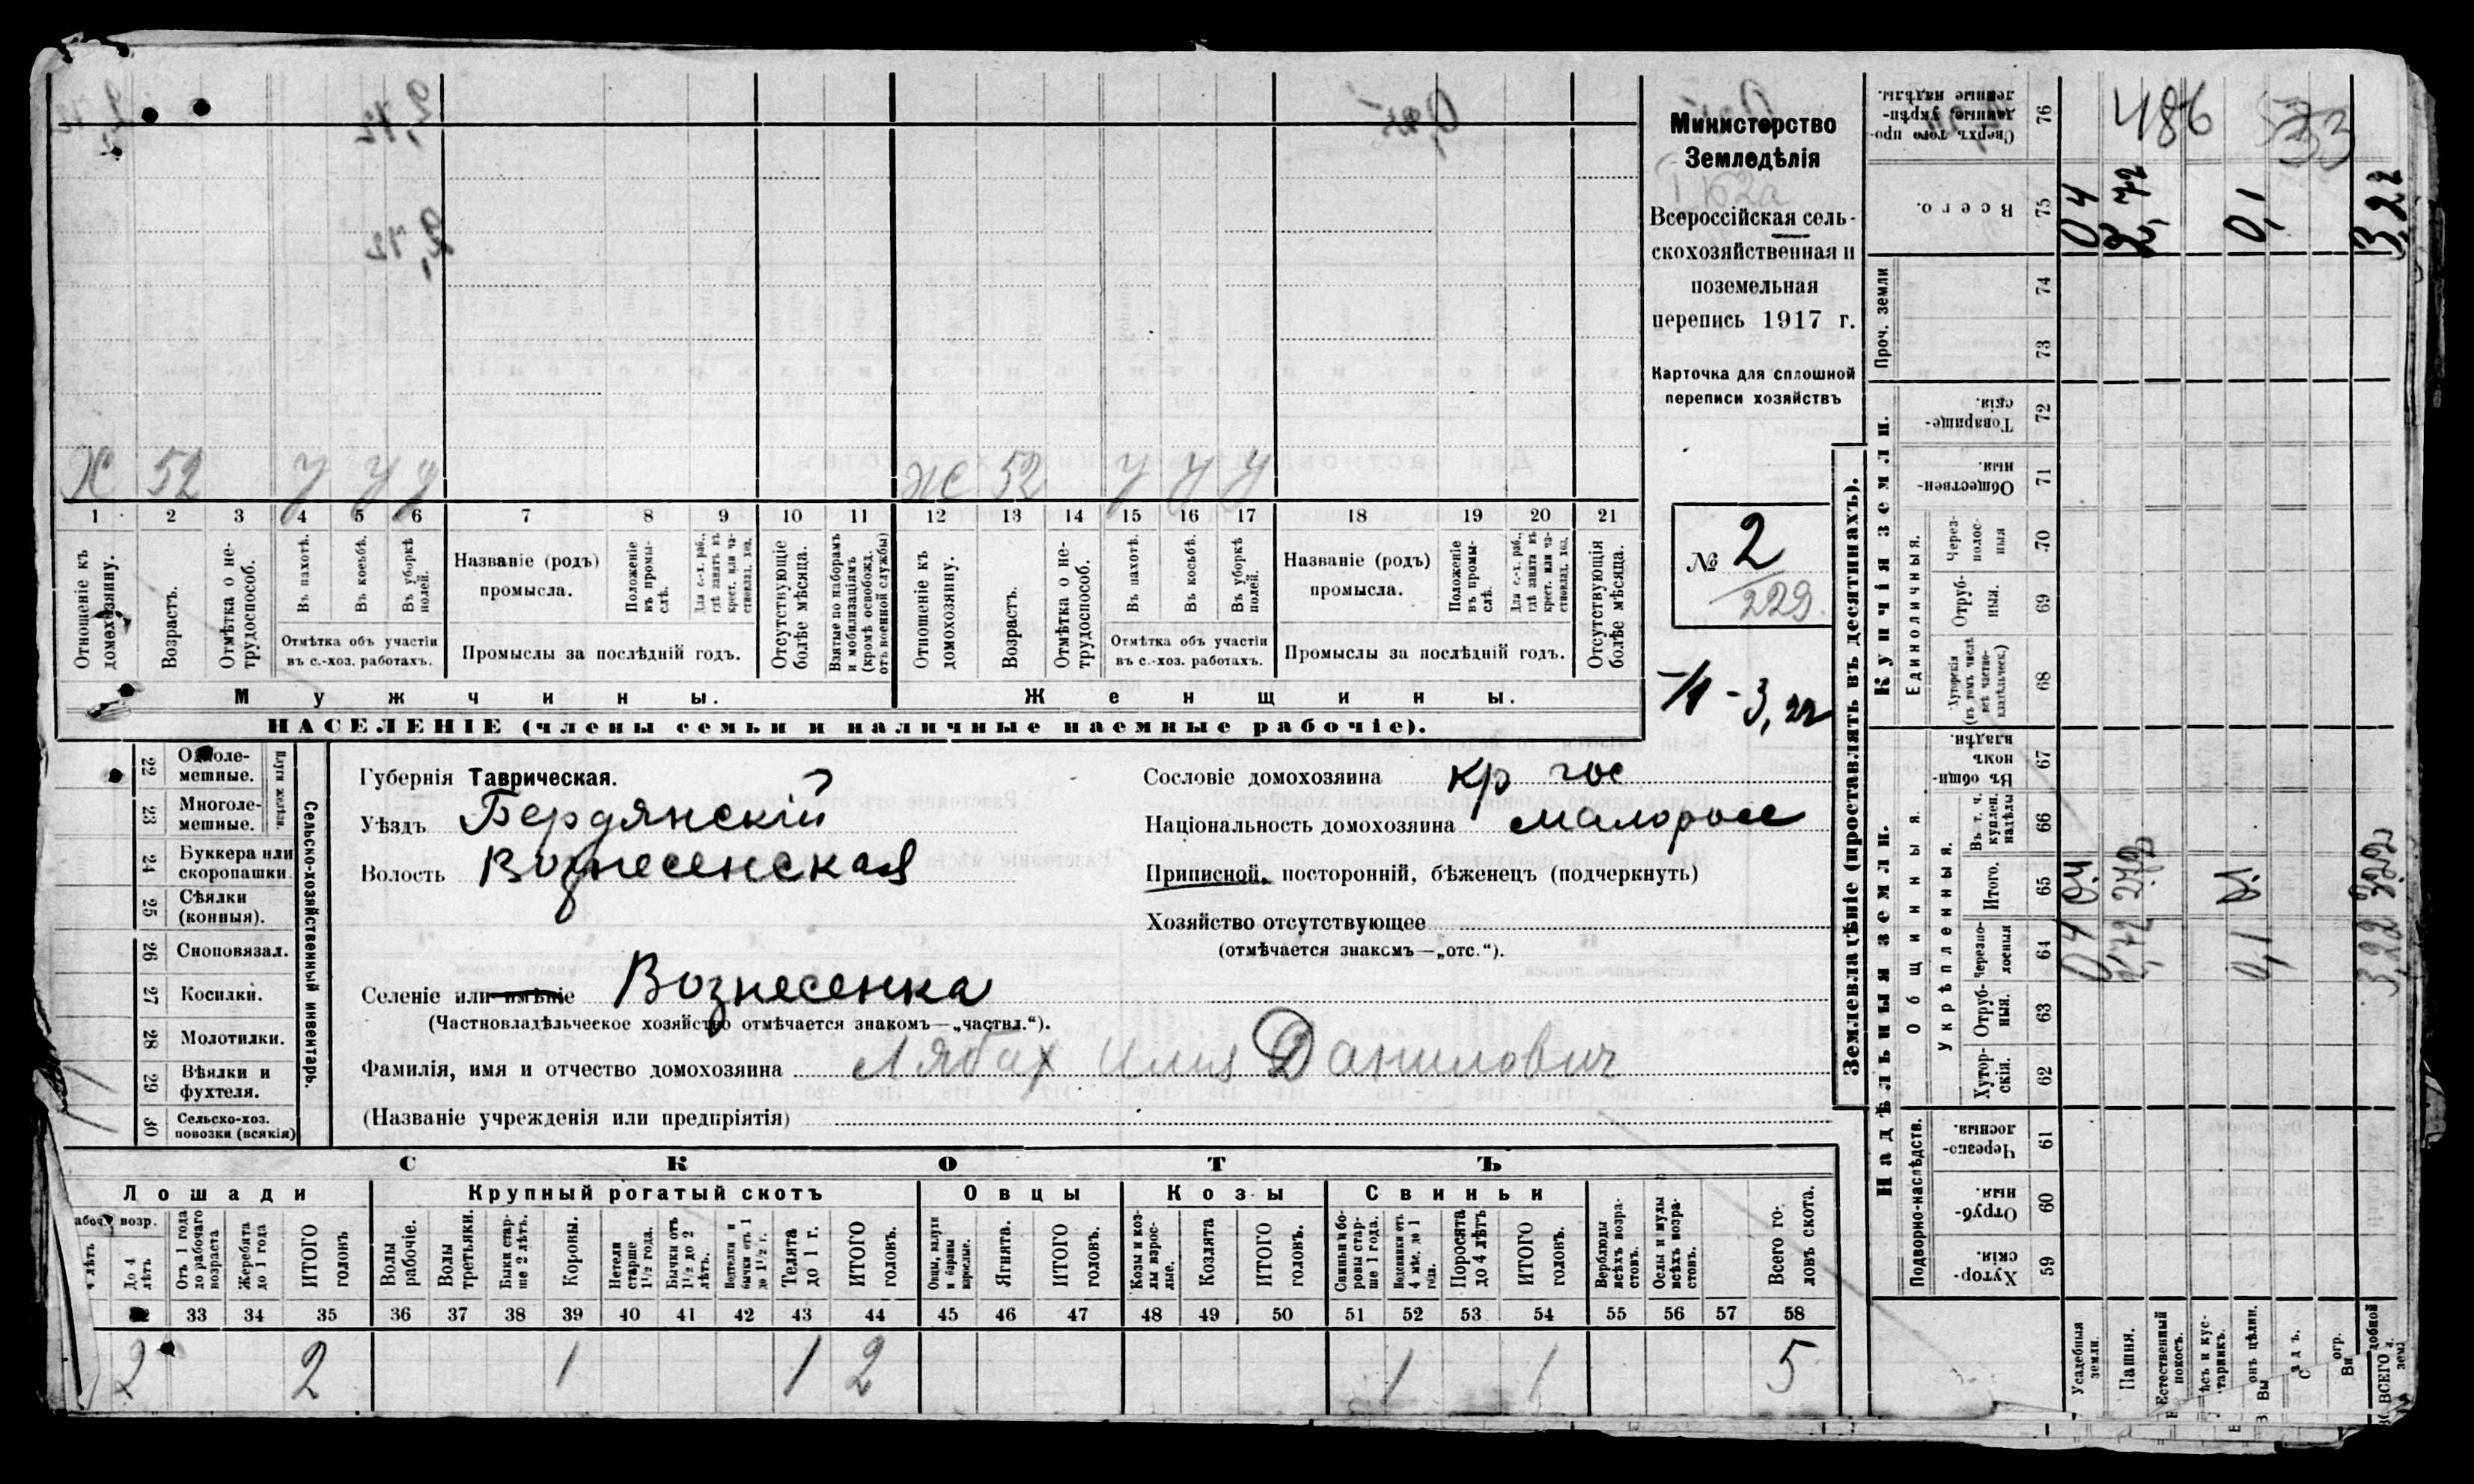 Министерство
Земледѣлія
Всероссійская сель-
скохозяйственная и
поземельная
перепись 1917 г.
Карточка для сплошной
переписи хозяйствъ
№ 2
229
3,22
Х 52 У У У
Ж 52 У У У
1 2 3 4 5 6 7 8 9 10 11 12 13 14 15 16 17 18 19 20 21
Отношеніе къ домохозяину.
Возрастъ.
Отмѣтка о не-трудоспособ.
Въ пахотѣ.
Въ косьбѣ.
Въ уборкѣ полей.
Отмѣтка объ участіи
въ с.-хоз. работахъ.
Названіе (родъ)
промысла.
Положеніе въ промы-слѣ.
Для с.-х. раб., гдѣ занятъ въ крест. или ча-стновлад. хоз.
Промыслы за послѣдній годъ.
Отсутствующіе болѣе мѣсяца.
Взятые по наборамъ и мобилизаціямъ (кромѣ освобожд. отъ военной службы)
Отношеніе къ домохозяину.
Возрастъ.
Отмѣтка о не-трудоспособ.
Въ пахотѣ.
Въ косьбѣ.
Въ уборкѣ полей.
Отмѣтка объ участіи
въ с.-хоз. работахъ.
Названіе (родъ)
промысла.
Положеніе въ промы-слѣ.
Для с.-х. раб., гдѣ занята въ крест. или ча-стновлад. хоз.
Промыслы за послѣдній годъ.
Отсутствующія болѣе мѣсяца.
Мужчины.
Женщины.
НАСЕЛЕНІЕ (члены семьи и наличные наемные рабочіе).
Сельско-хозяйственный инвентарь.
Плуги желѣзн.
22 Одноле-мешные.
23 Многоле-мешные.
24 Буккера или скоропашки.
25 Сѣялки (конныя).
26 Сноповязал.
27 Косилки.
28 Молотилки.
29 Вѣялки и фухтеля.
30 Сельско-хоз. повозки (всякія)
Губернія Таврическая.
Уѣздъ Бердянскій
Волость Вознесенская
Селеніе или имѣніе Вознесенка
(Частновладѣльческое хозяйство отмѣчается знакомъ—„частвл.“).
Фамилія, имя и отчество домохозяина Лябах Илія Данилович
(Названіе учрежденія или предпріятія)
Сословіе домохозяина кр гос
Національность домохозяина малоросс
Приписной, посторонній, бѣженецъ (подчеркнуть)
Хозяйство отсутствующее
(отмѣчается знакомъ—„отс.“).
СКОТЪ
Лошади
Крупный рогатый скотъ
Овцы
Козы
Свиньи
возр.
До 4 лѣтъ
Отъ 1 года до рабочаго возраста
Жеребята до 1 года
ИТОГО головъ
Волы рабочіе.
Волы третьяки.
Быки стар-ше 2 лѣтъ.
Коровы.
Нетели старше 1½ года.
Бычки отъ 1½ до 2 лѣтъ.
Нетелки и бычки отъ 1 до 1½ г.
Телята до 1 г.
ИТОГО головъ.
Овцы, валухи и бараны взрослые.
Ягнята.
ИТОГО головъ.
Козы и коз-лы взрос-лые.
Козлята
ИТОГО головъ.
Свиньи и бо-ровы стар-ше 1 года.
Подсвинки отъ 4 мѣс. до 1 года.
Поросята до 4 лѣтъ
ИТОГО головъ.
Верблюды всѣхъ возра-стовъ.
Ослы и мулы всѣхъ возра-стовъ.
Всего го-ловъ скота.
33 34 35 36 37 38 39 40 41 42 43 44 45 46 47 48 49 50 51 52 53 54 55 56 57 58
2 2 1 1 2 1 1 5
Землевладѣніе (проставлять въ десятинахъ).
Купчія земли.
Надѣльныя земли.
Сверхъ того про-данные укрѣп-ленные надѣлы. 76
Всего. 75
Проч. земли
74
73
Товарище-скія. 72
Обществен-ныя. 71
Единоличныя.
Через-полос-ныя 70
Отруб-ныя. 69
Хуторскія (въ томъ числѣ всѣ частно-владѣльческ.) 68
Общинныя.
Въ общи-номъ владѣн. 67
Укрѣпленныя.
Въ т. ч. куплен. надѣлы 66
Итого. 65
Черезпо-лосныя 64
Отруб-ныя. 63
Хутор-скія. 62
Подворно-наслѣдств.
Черезпо-лосныя. 61
Отруб-ныя. 60
Хутор-скія. 59
Усадебныя земли.
Пашня.
Естественный покосъ.
486
533
04 2,72 0,1 3,22
04 2,72 0,1 3,22
04 2,72 0,1 3,22